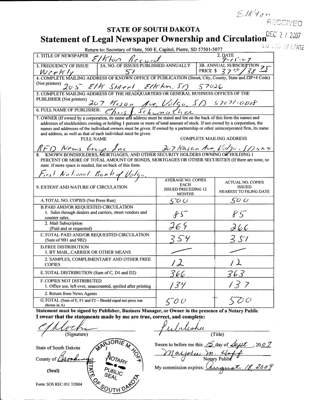 Elkton
RECEIVED
DEC 27 2007
STATE OF SOUTH DAKOTA
Statement of Legal Newspaper Ownership and Circulation
Return to: Secretary of State, 500 E. Capitol, Pierre, SD 57501-5077
1. TITLE OF NEWSPAPER
Elkton Record
2. DATE
3. FREQUENCY OF ISSUE
Weekly
3A. NO. OF ISSUES PUBLISHED ANNUALLY
51
3B. ANNUAL SUBSCRIPTION
PRICE $
4. COMPLETE MAILING ADDRESS OF KNOWN OFFICE OF PUBLICATION (Street, City, County, State and ZIP+4 Code)
(Not printers)
205 Elk Street Elkton SD 57026
5. COMPLETE MAILING ADDRESS OF THE HEADQUARTERS OR GENERAL BUSINESS OFFICES OF THE
PUBLISHER (Not printers)
207 Kasan Ave Volga, SD 57071-0018
6. FULL NAME OF PUBLISHER:
Chris Schumacher
7. OWNER (If owned by a corporation, its name and address must be stated and list on the back of this form the names and
addresses of stockholders owning or holding 1 percent or more of total amount of stock. If not owned by a corporation, the
names and addresses of the individual owners must be given. If owned by a partnership or other unincorporated firm, its name
and address, as well as that of each individual must be given.
FULL NAME
COMPLETE MAILING ADDRESS
RFD News Group Inc
207 Kasan Ave Volga, SD
8. KNOWN BONDHOLDERS, MORTGAGES, AND OTHER SECURITY HOLDERS OWNING OR HOLDING 1
PERCENT OR MORE OF TOTAL AMOUNT OF BONDS, MORTGAGES OR OTHER SECURITIES (If there are none, so
state. If more space is needed, list on back of this form.
First National Bank of Volga
9. EXTENT AND NATURE OF CIRCULATION
AVERAGE NO. COPIES
EACH
ISSUED PRECEDING 12
MONTHS
ACTUAL NO. COPIES
ISSUED
NEAREST TO FILING DATE
A. TOTAL NO. COPIES (Net Press Run)
500
500
B. PAID AND/OR REQUESTED CIRCULATION
1. Sales through dealers and carriers, street vendors and
counter sales.
85
85
2. Mail Subscription
(Paid and or requested)
269
266
C. TOTAL PAID AND/OR REQUESTED CIRCULATION
(Sum of 9B1 and 9B2)
354
351
D. FREE DISTRIBUTION
1. BY MAIL, CARRIER OR OTHER MEANS
2. SAMPLES, COMPLIMENTARY AND OTHER FREE
COPIES
12
12
E. TOTAL DISTRIBUTION (Sum of C, D1 and D2)
366
363
F. COPIES NOT DISTRIBUTED
1. Office use, left over, unaccounted, spoiled after printing
134
137
2. Return from News Agents
G. TOTAL (Sum of E, F1 and F2 – Should equal net press run
shown in A)
500
500
Statement must be signed by Publisher, Business Manager, or Owner in the presence of a Notary Public
I swear that the statements made by me are true, correct, and complete:
(Signature)
Publisher
(Title)
State of South Dakota
County of Brookings
(Seal)
MARJORIE M. HOFF
NOTARY
PUBLIC
SEAL
SOUTH DAKOTA
Sworn to before me this 15 day of Sept 2007
Marjorie M. Hoff
Notary Public
My commission expires: August 18, 2009
Form: SOS REC 051 7/2004